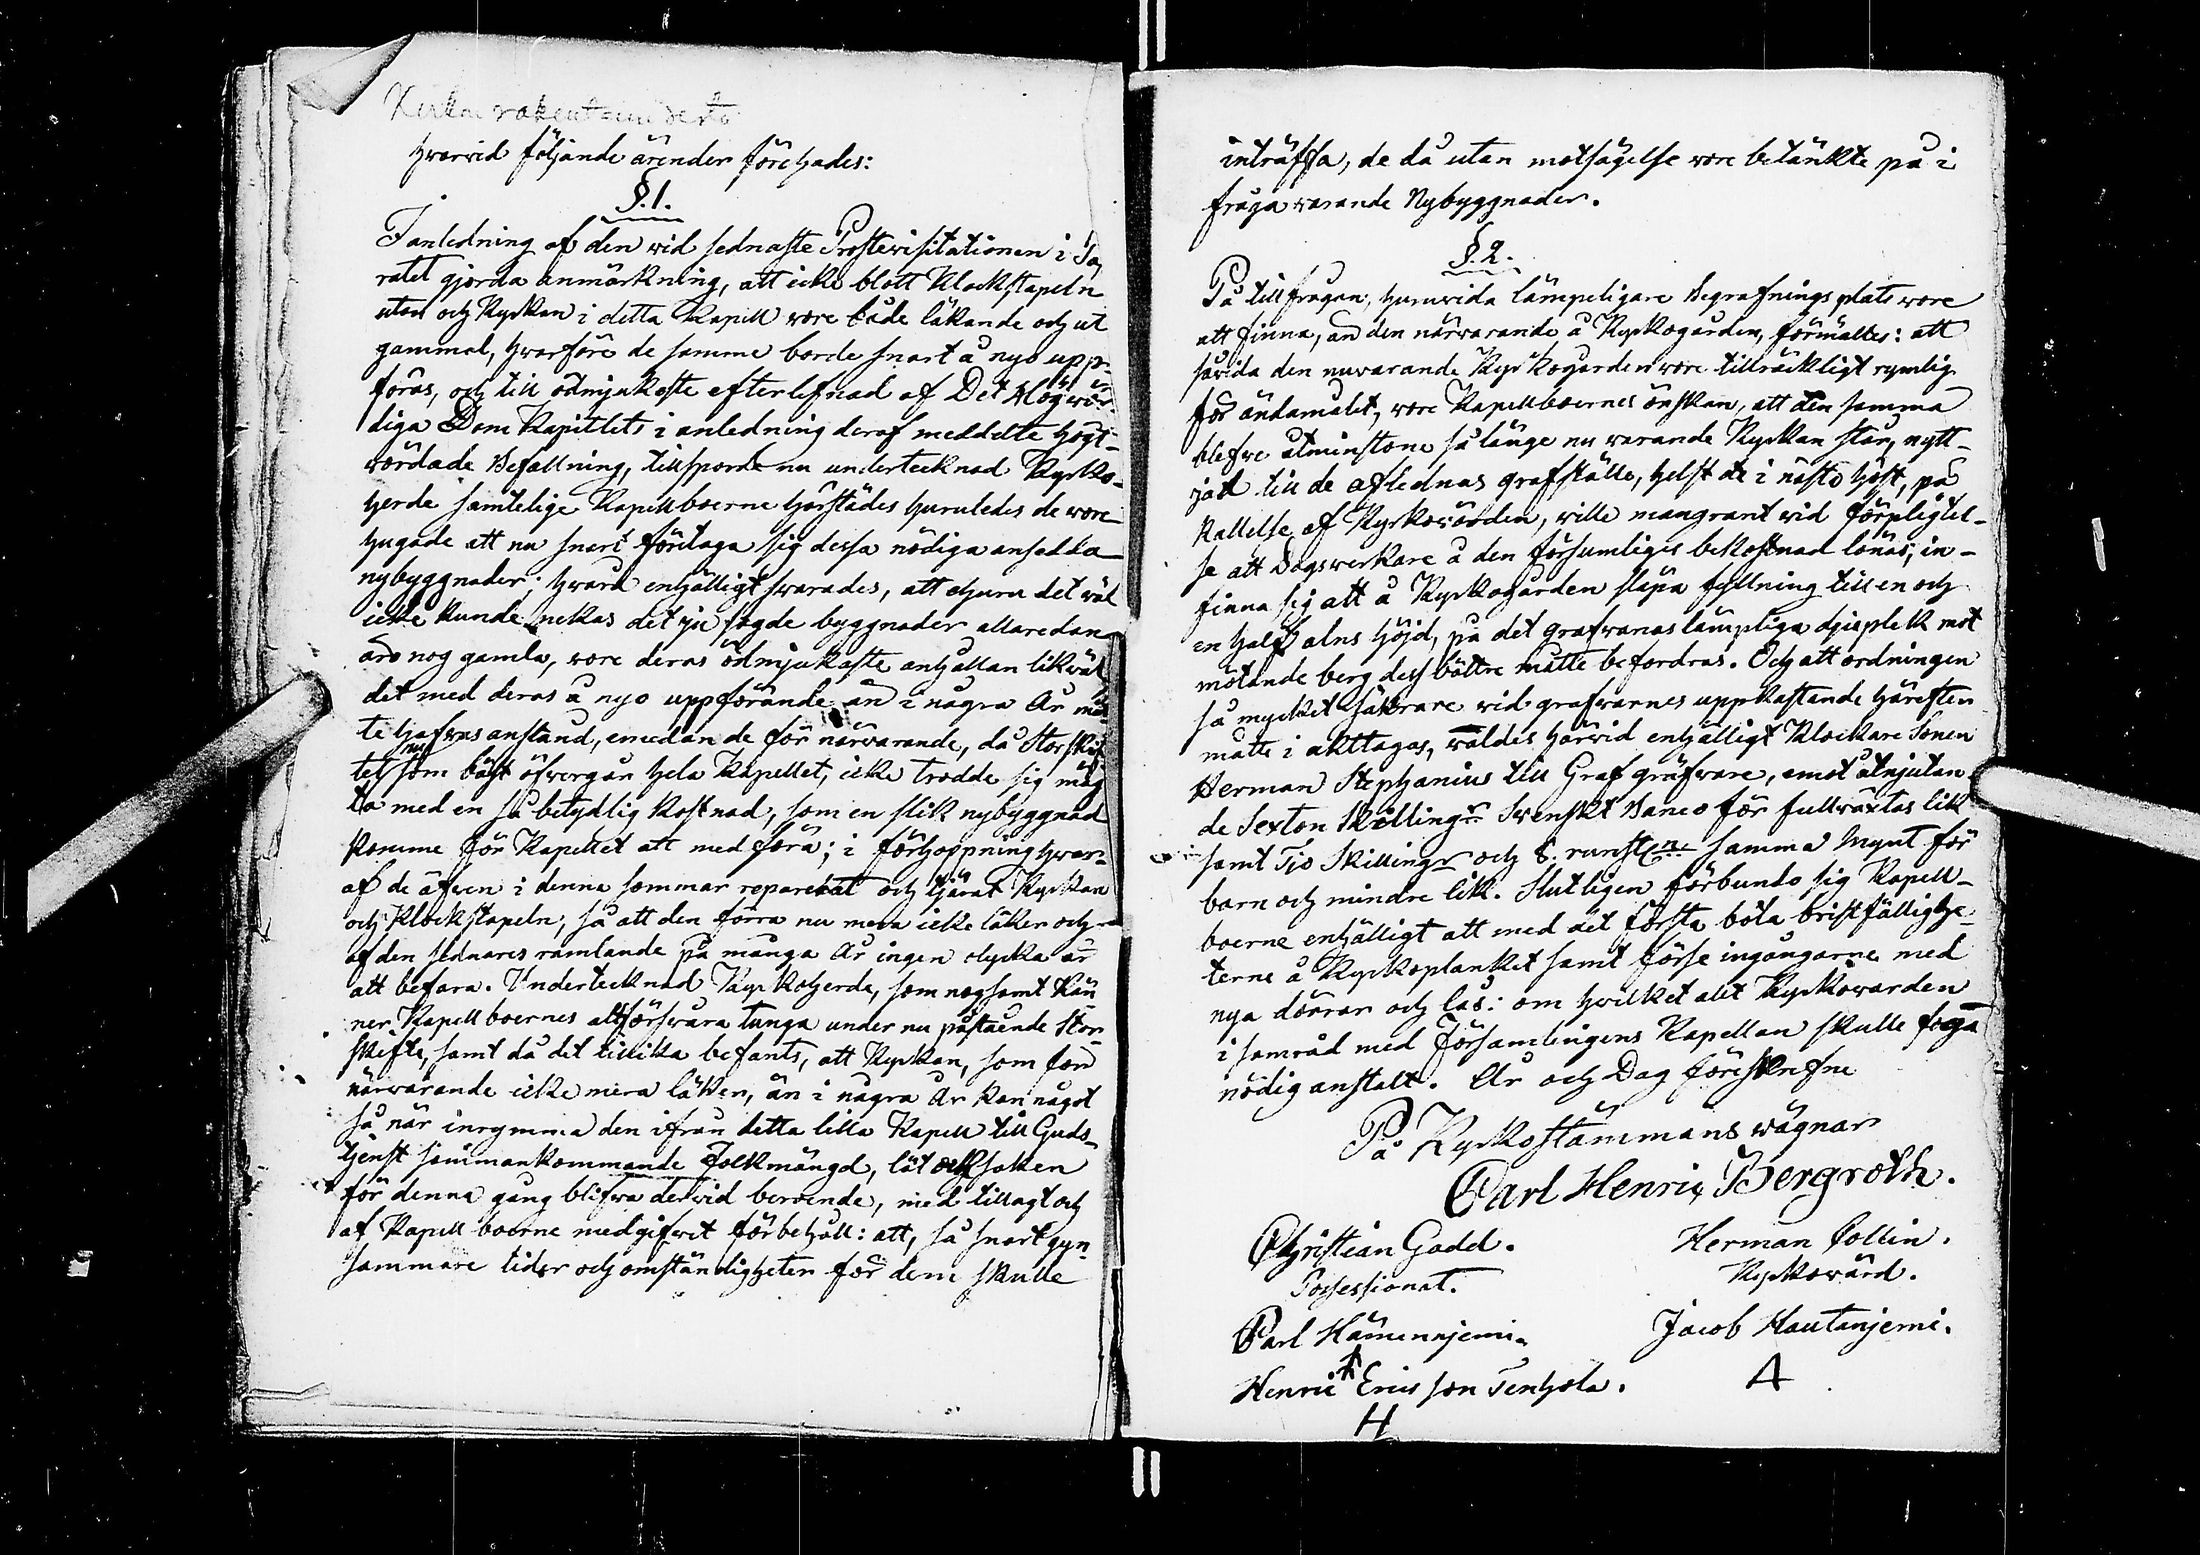 Kirkon rakentamisesta
Hvarvid följande ärender förehades:
§. 1.
I anledning af den wid sednaste Prostevisitationen i So,
ratet gjorda anmärkning, att icke blott Klockstapeln
utan och Kyrkan i detta Kapell wore både läkande och ut
gammal, hvarföre de samme borde snart å nyo upp-
föras, och till ödmjukaste efterlefnad af Det Högwör-
diga Dom Kapitlets i anledning deraf meddelte högt-
wördade Befallning, tillsporde nu undertecknad Kyrko-
herde samtelige Kapellboerne härstädes huruledes de wore
hugade att nu snart företaga sig dessa nödiga ansedda
nybyggnader; hvarå enhälligt swarades, att ehuru det wäl
icke kunde nekas det ju sagde byggnader allaredan
äro nog gamla, wore deras ödmjukaste anhållan likwäl
det med deras å nyo uppförande än i några År måt
te hafwas anstånd, emedan de för närvarande, då Storskif
tet som bäst öfvergår hela Kapellet, icke trodde sig mäg
ta med en så betydlig kostnad, som en slik nybyggnad
komme för Kapellet att medföra; i förhoppning hwar-
af de äfven i denna sommar reparerat och tjärat Kyrkan
och Klockstapeln, så att den förra nu mera icke läker och
af den sednares ramlande på många År ingen olycka är
att befara. Undertecknad Kyrkoherde, som nogsamt kän
ner Kapellboernes allt försvåra tunga under nu påstående Stor
skifte, samt då det tillika befants, att Kyrkan, som för
närwarande icke mera läker, än i några År kan något
så när inrymma den ifrån detta lilla Kapell till Guds-
tjenst sammankommande Folkmängd, lät ock saken
för denna gång blifwa derwid beroende, med tillagt och
af Kapellboerne medgifwit förbehåll: att, så snart gyn
sammare tider och omständigheter för dem skulle
inträffa, de då utan motsägelse wore betänkte på i
fråga warande Nybyggnader.
§. 2.
På tillfrågan, huruvida lämpeligare Begrafningsplats wore
att finna, än den närvarande å Kyrkogården, förmältes: att
såvida den nuvarande Kyrkogården wore tillräckligt rymlig
för ändamålet, wore Kapellboernes önskan, att den samma
blefwe åtminstone så länge nu warande Kyrkan står, nytt-
jad till de aflednas grafställe, helst de i nästa höst, på
Kallelse af Kyrkowärden, wille mangrant wid förpligtel-
se att Dagswerkare å den försumliges bekostnad lönas, in-
finna sig att å Kyrkogården släpa fyllning till en och
en half alns höjd, på det grafwarnas lämpliga djuplek mot
mötande berg dess bättre måtte befordras. Och att ordningen
så mycket säkrare wid grafwarnes uppkastande härefter
måtte i akttagas, waldes härvid enhälligt Klockare Sonen
Herman Stephanius till Graf gräfware, emot åtnjutan
de Sexton Skillingr Svenskt Banco för fullwäxtas lik
samt Tio Skillingr och 8. runstne samma Mynt för
barn och mindre lik. Slutligen förbundo sig Kapell-
boerne enhälligt att med det första böta bristfällighe-
terne å Kyrkoplanket samt förse ingångarne med
nya dörrar och lås: om hvilket allt Kyrkowärden
i samråd med Församlingens Kapellan skulle foga
nödig anstalt. År och Dag föreskrefne
På Kyrkostämmans wägnar
Carl Henric Bergroth.
Christian Gadd. Herman Collin.
Possessionat. Kyrkowärd.
Carl Hämennjemi. Jacob Hautanjemi.
Henric Ericsson Tenhola. A
H